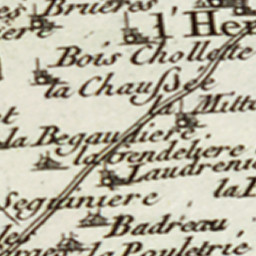 Brueres
l'He
Bois Chollette
la Chaussée
Mitte
la Begaudiere
la Gendeliere
Laudreni
Seguiniere
la
Badreau
la Pouletrie